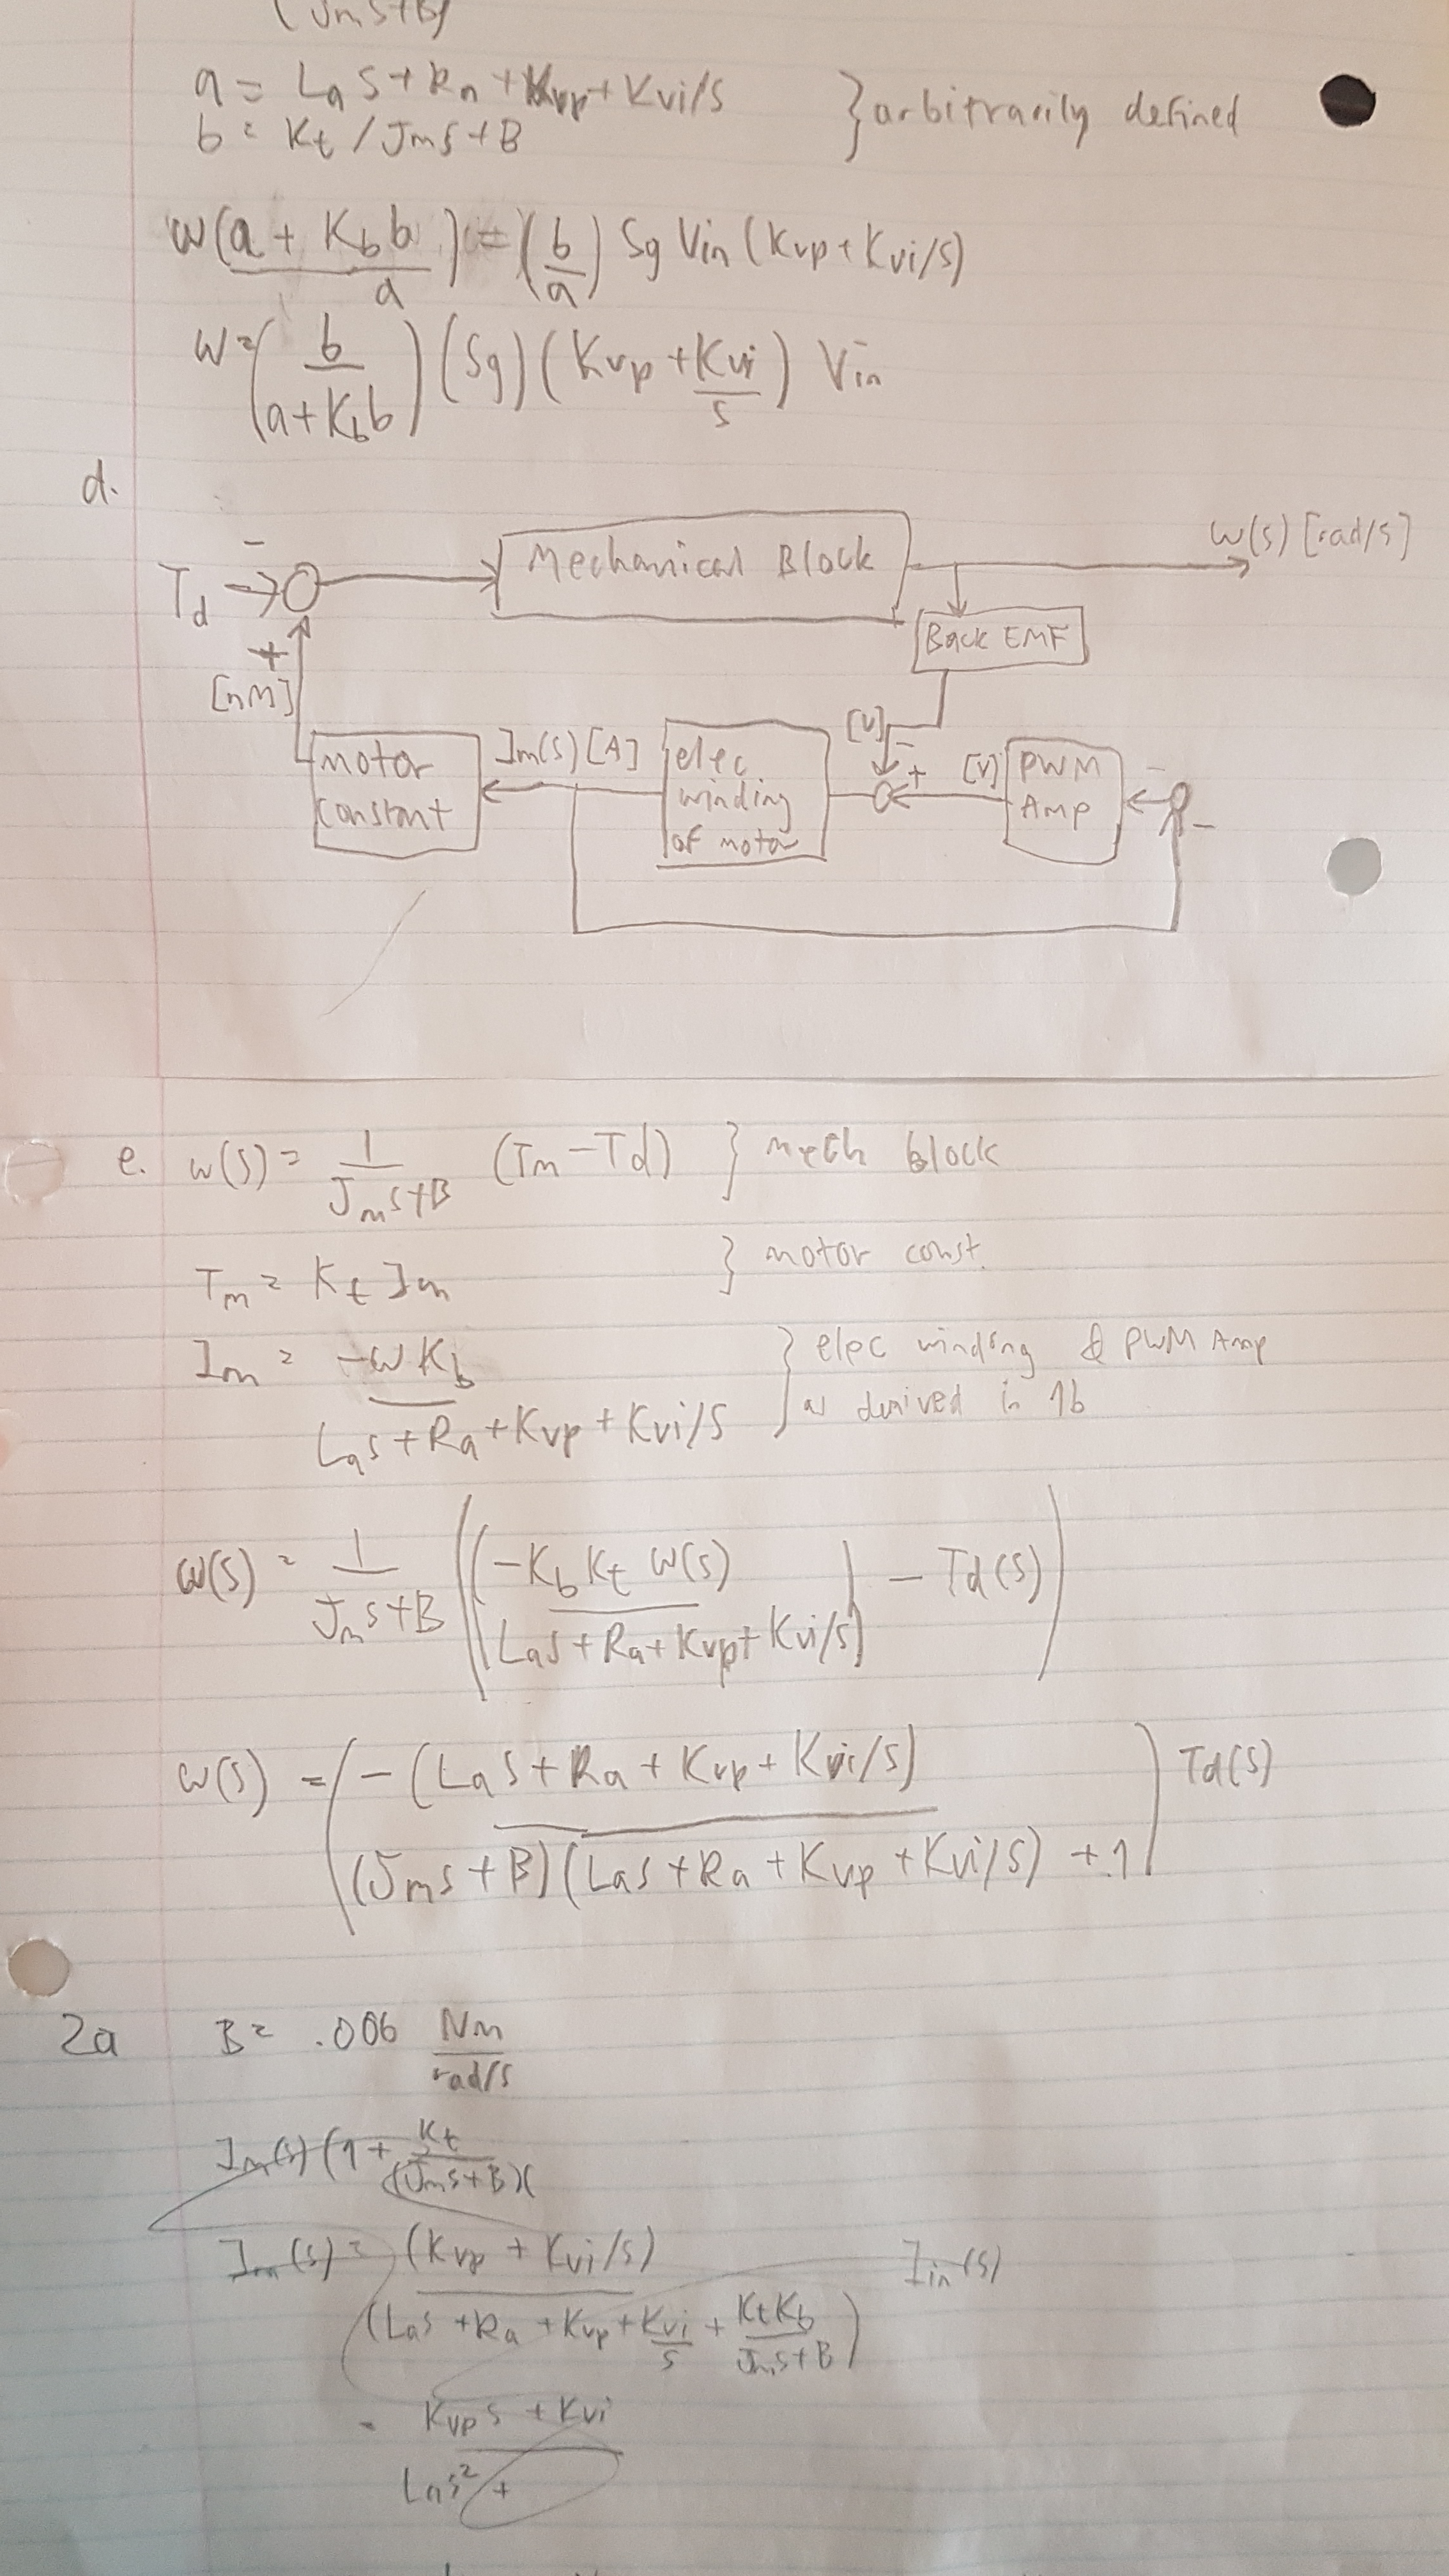 (Jms+B)
a = Las + Ra + Kvp + Kvi/s } arbitrarily defined
b = Kt / Jms + B
w(a + Kb b / a) = (b/a) Sg Vin (Kvp + Kvi/s)
w = (b / (a + Kb b)) (Sg) (Kvp + Kvi/s) Vin
d.
Td - Mechanical Block w(s) [rad/s]
+ Back EMF
[nM]
motor constant Im(s) [A] elec winding of motor [V] - + [V] PWM Amp - -
e. w(s) = 1/(Jms+B) (Tm - Td) } mech block
Tm = Kt Im } motor const.
Im = -wKb / (Las + Ra + Kvp + Kvi/s) } elec winding & PWM Amp
as derived in 1b
w(s) = 1/(Jms+B) ((-Kb Kt w(s) / (Las + Ra + Kvp + Kvi/s)) - Td(s))
w(s) = (-(Las + Ra + Kvp + Kvi/s) / ((Jms + B)(Las + Ra + Kvp + Kvi/s) + 1)) Td(s)
2a B = .006 Nm / rad/s
Im(s) (1 + Kt / (Jms+B)(
Im(s) = (Kvp + Kvi/s) / (Las + Ra + Kvp + Kvi/s + KtKb/(Jms+B)) Iin(s)
= Kvp s + Kvi
Las² +